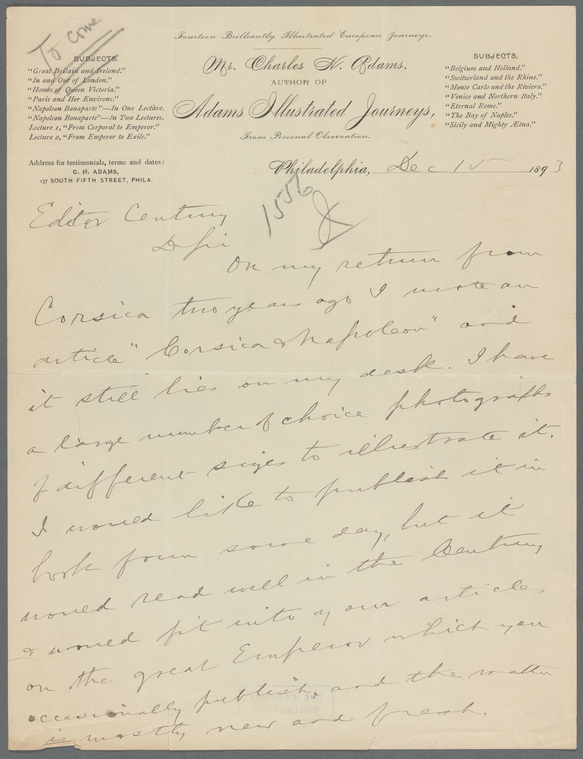 To come
Fourteen Brilliantly Illustrated European Journeys.
Mr. Charles N. Adams,
AUTHOR OF
Adams Illustrated Journeys,
From Personal Observation.
SUBJECTS.
"Great Britain and Ireland."
"In and Out of London."
"Homes of Queen Victoria."
"Paris and Her Environs."
"Napoleon Bonaparte"—In One Lecture.
"Napoleon Bonaparte"—In Two Lectures.
Lecture 1, "From Corporal to Emperor."
Lecture 2, "From Emperor to Exile."
SUBJECTS.
"Belgium and Holland."
"Switzerland and the Rhine."
"Monte Carlo and the Riviera."
"Venice and Northern Italy."
"Eternal Rome."
"The Bay of Naples."
"Sicily and Mighty Ætna."
Address for testimonials, terms and dates:
C. N. ADAMS,
137 SOUTH FIFTH STREET, PHILA.
Philadelphia, Dec 15 1893
1556
Editor Century
D Sir
On my return from
Corsica two years ago I wrote an
article "Corsica & Napoleon" and
it still lies on my desk. I have
a large number of choice photographs
of different sizes to illustrate it.
I would like to publish it in
book form some day, but it
would read well in the Century
& would fit into your articles
on the great Emperor which you
occasionally publish, and the matter
is mostly new and fresh.